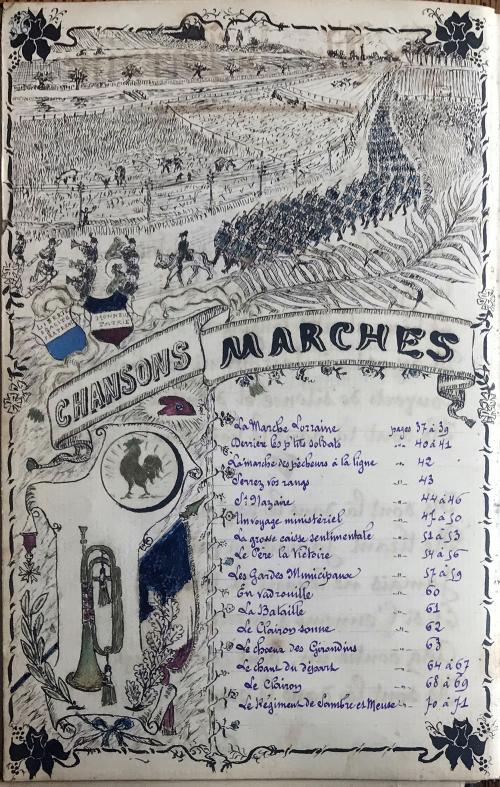 HONNEUR
PATRIE
CHANSONS MARCHES
La Marche Lorraine pages 37 à 39
Derrière les p'tits soldats " 40 à 41
La marche des pêcheurs à la ligne " 42
Serrez vos rangs " 43
St Nazaire " 44 à 46
Un voyage ministériel " 47 à 50
La grosse caisse sentimentale " 51 à 53
Le Père la Victoire " 54 à 56
Les Gardes Municipaux " 57 à 59
En Vadrouille " 60
La Bataille " 61
Le Clairon sonne " 62
Le chœur des Girondins " 63
Le chant du départ " 64 à 67
Le Clairon " 68 à 69
Le Régiment de Sambre et Meuse " 70 à 71